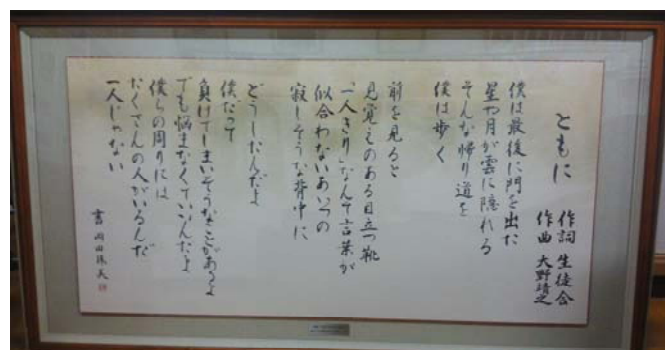 ともに
作詞 生徒会
作曲 大野靖之
僕は最後に門を出た
星や月が雲に隠れる
そんな帰り道を
僕は歩く
前を見ると
見覚えのある目立つ靴
「一人きり」なんて言葉が
似合わないあいつの
寂しそうな背中に
どうしたんだよ
僕だって
負けてしまいそうなことがあるよ
でも悩まなくていいんだよ
僕らの周りには
たくさんの人がいるんだ
一人じゃない
書 岡田